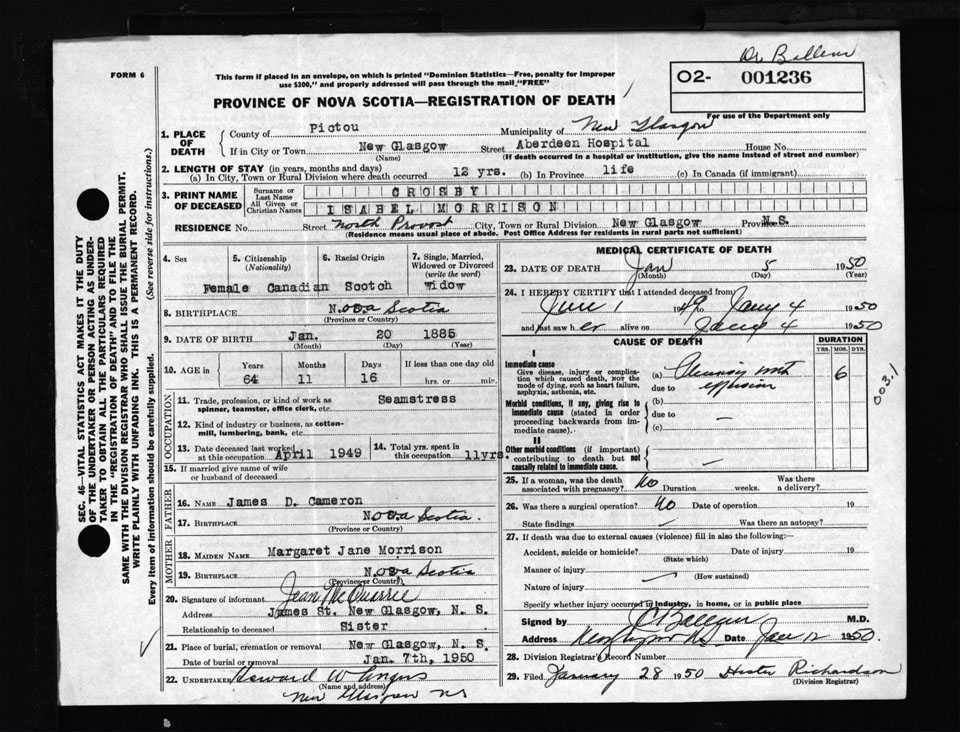 Dr Ballem
FORM 6
This form if placed in an envelope, on which is printed "Dominion Statistics—Free, penalty for improper
use $300," and properly addressed will pass through the mail "FREE"
O2- 001236
PROVINCE OF NOVA SCOTIA—REGISTRATION OF DEATH
For use of the Department only
1. PLACE OF DEATH
County of Pictou Municipality of New Glasgow
If in City or Town New Glasgow Street Aberdeen Hospital House No.
(Name) (If death occurred in a hospital or institution, give the name instead of street and number)
2. LENGTH OF STAY (in years, months and days)
(a) In City, Town or Rural Division where death occurred 12 yrs. (b) In Province life (c) In Canada (if immigrant)
3. PRINT NAME OF DECEASED
Surname or Last Name CROSBY
All Given or Christian Names ISABEL MORRISON
RESIDENCE No. Street North Provost City, Town or Rural Division New Glasgow Province N.S.
(Residence means usual place of abode. Post Office Address for residents in rural parts not sufficient)
4. Sex 5. Citizenship (Nationality) 6. Racial Origin 7. Single, Married, Widowed or Divorced (write the word)
Female Canadian Scotch Widow
8. BIRTHPLACE Nova Scotia
(Province or Country)
9. DATE OF BIRTH Jan. 20 1885
(Month) (Day) (Year)
10. AGE in Years Months Days If less than one day old
64 11 16 hrs. or min.
OCCUPATION
11. Trade, profession, or kind of work as spinner, teamster, office clerk, etc. Seamstress
12. Kind of industry or business, as cotton-mill, lumbering, bank, etc.
13. Date deceased last worked at this occupation April 1949 14. Total yrs. spent in this occupation 11yrs.
15. If married give name of wife or husband of deceased
FATHER
16. Name James D. Cameron
17. Birthplace Nova Scotia.
(Province or Country)
MOTHER
18. Maiden Name Margaret Jane Morrison
19. Birthplace Nova Scotia
(Province or Country)
20. Signature of informant Jean McQuarrie
Address James St. New Glasgow, N. S.
Relationship to deceased Sister
21. Place of burial, cremation or removal New Glasgow, N. S.
Date of burial or removal Jan. 7th, 1950
22. Undertaker Howard W Angus
(Name and address)
New Glasgow NS
MEDICAL CERTIFICATE OF DEATH
23. DATE OF DEATH Jan 5 1950
(Month) (Day)
24. I HEREBY CERTIFY that I attended deceased from
June 1 1949 to Jany 4 1950
and last saw her alive on Jany 4 1950
CAUSE OF DEATH DURATION
YRS. MOS. DYS.
I
Immediate cause
Give disease, injury or complication which caused death, not the mode of dying, such as heart failure, asphyxia, asthenia, etc.
(a) Pleurisy with 6
due to effusion
003.1
Morbid conditions, if any, giving rise to immediate cause (stated in order proceeding backwards from immediate cause).
(b)
due to —
(c)
II
Other morbid conditions (if important) contributing to death but not causally related to immediate cause. —
25. If a woman, was the death associated with pregnancy? No Duration weeks. Was there a delivery?
26. Was there a surgical operation? No Date of operation 19
State findings — Was there an autopsy?
27. If death was due to external causes (violence) fill in also the following:—
Accident, suicide or homicide? Date of injury 19
(State which)
Manner of injury
(How sustained)
Nature of injury
Specify whether injury occurred in industry, in home, or in public place
Signed by J C Ballem M.D.
Address New Glasgow NS Date Jan 12 1950.
28. Division Registrar's Record Number
29. Filed January 28 1950 Hester Richardson
(Division Registrar)
SEC. 46—VITAL STATISTICS ACT MAKES IT THE DUTY
OF THE UNDERTAKER OR PERSON ACTING AS UNDER-
TAKER TO OBTAIN ALL THE PARTICULARS REQUIRED
IN THE "REGISTRATION OF DEATH" AND TO FILE THE
SAME WITH THE DIVISION REGISTRAR WHO SHALL ISSUE THE BURIAL PERMIT.
WRITE PLAINLY WITH UNFADING INK. THIS IS A PERMANENT RECORD.
Every item of information should be carefully supplied. (See reverse side for instructions.)